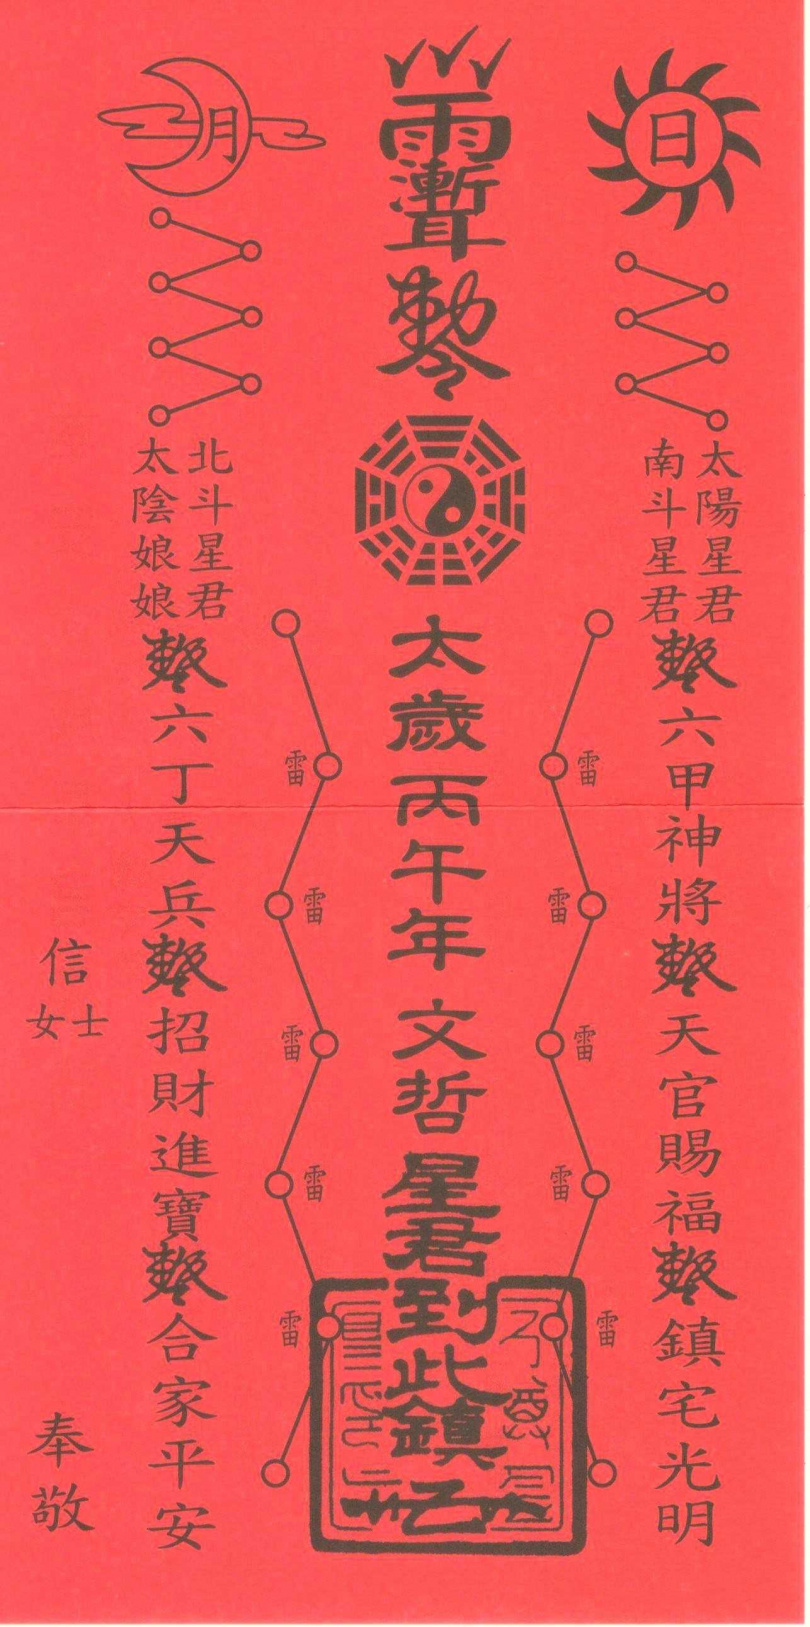 日
太陽星君
南斗星君
勅六甲神將勅天官賜福勅鎮宅光明
雷
雷
雷
雷
雷
雨漸耳
勅令
太歲丙午年文哲星君到此鎮
雷
雷
雷
雷
雷
月
北斗星君
太陰娘娘
勅六丁天兵勅招財進寶勅合家平安
信士女
奉敬